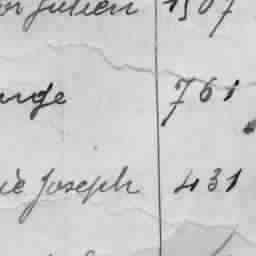 Julien 1507
ange 761
ie Joseph 431